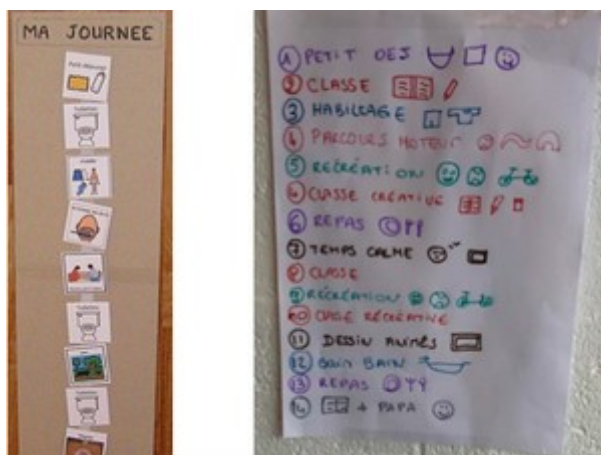 MA JOURNEE
Petit déjeuner
1 PETIT DEJ
2 CLASSE
3 HABILLAGE
4 PARCOURS MOTEUR
5 RECRÉATION
6 CLASSE CRÉATIVE
6 REPAS
7 TEMPS CALME
8 CLASSE
9 RÉCRÉATION
10 CLASSE RÉCRÉATIVE
11 DESSIN ANIMÉS
12 BAIN BAIN
13 REPAS
14 + PAPA